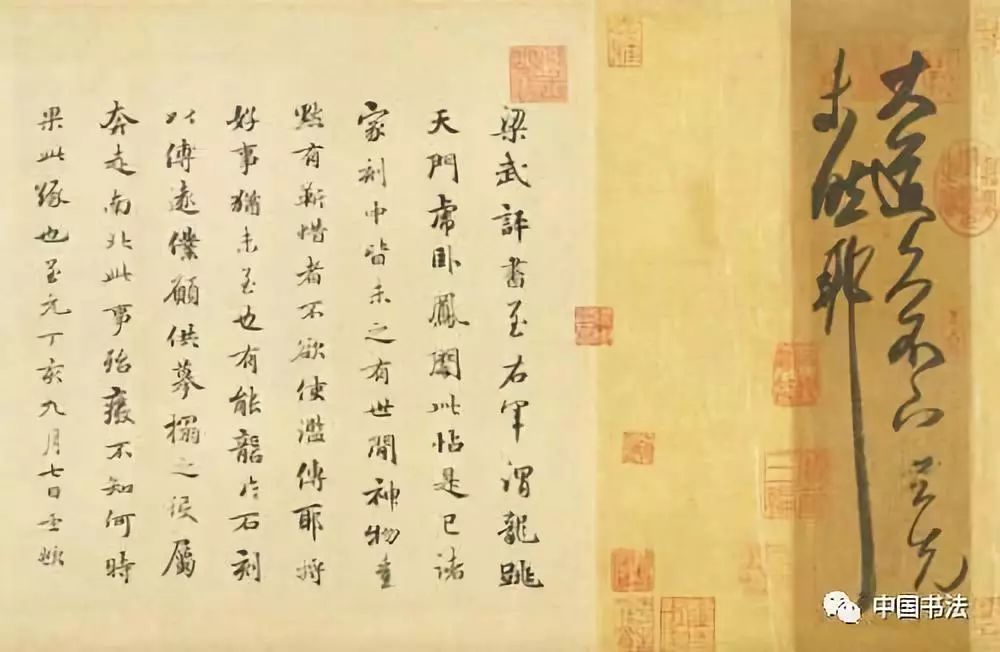 大道久不下与先
未然耶
梁武評書至右軍謂龍跳
天門虎卧鳳闕此帖是已諸
家刻中皆未之有世間神物豈
黙有靳惜者不欲使濫傳耶將
好事猶未至也有能礱片石刻
以傳遠僕願供摹搨之役屬
奔走南北此事殆廢不知何時
果此緣也至元丁亥九月七日
中国书法